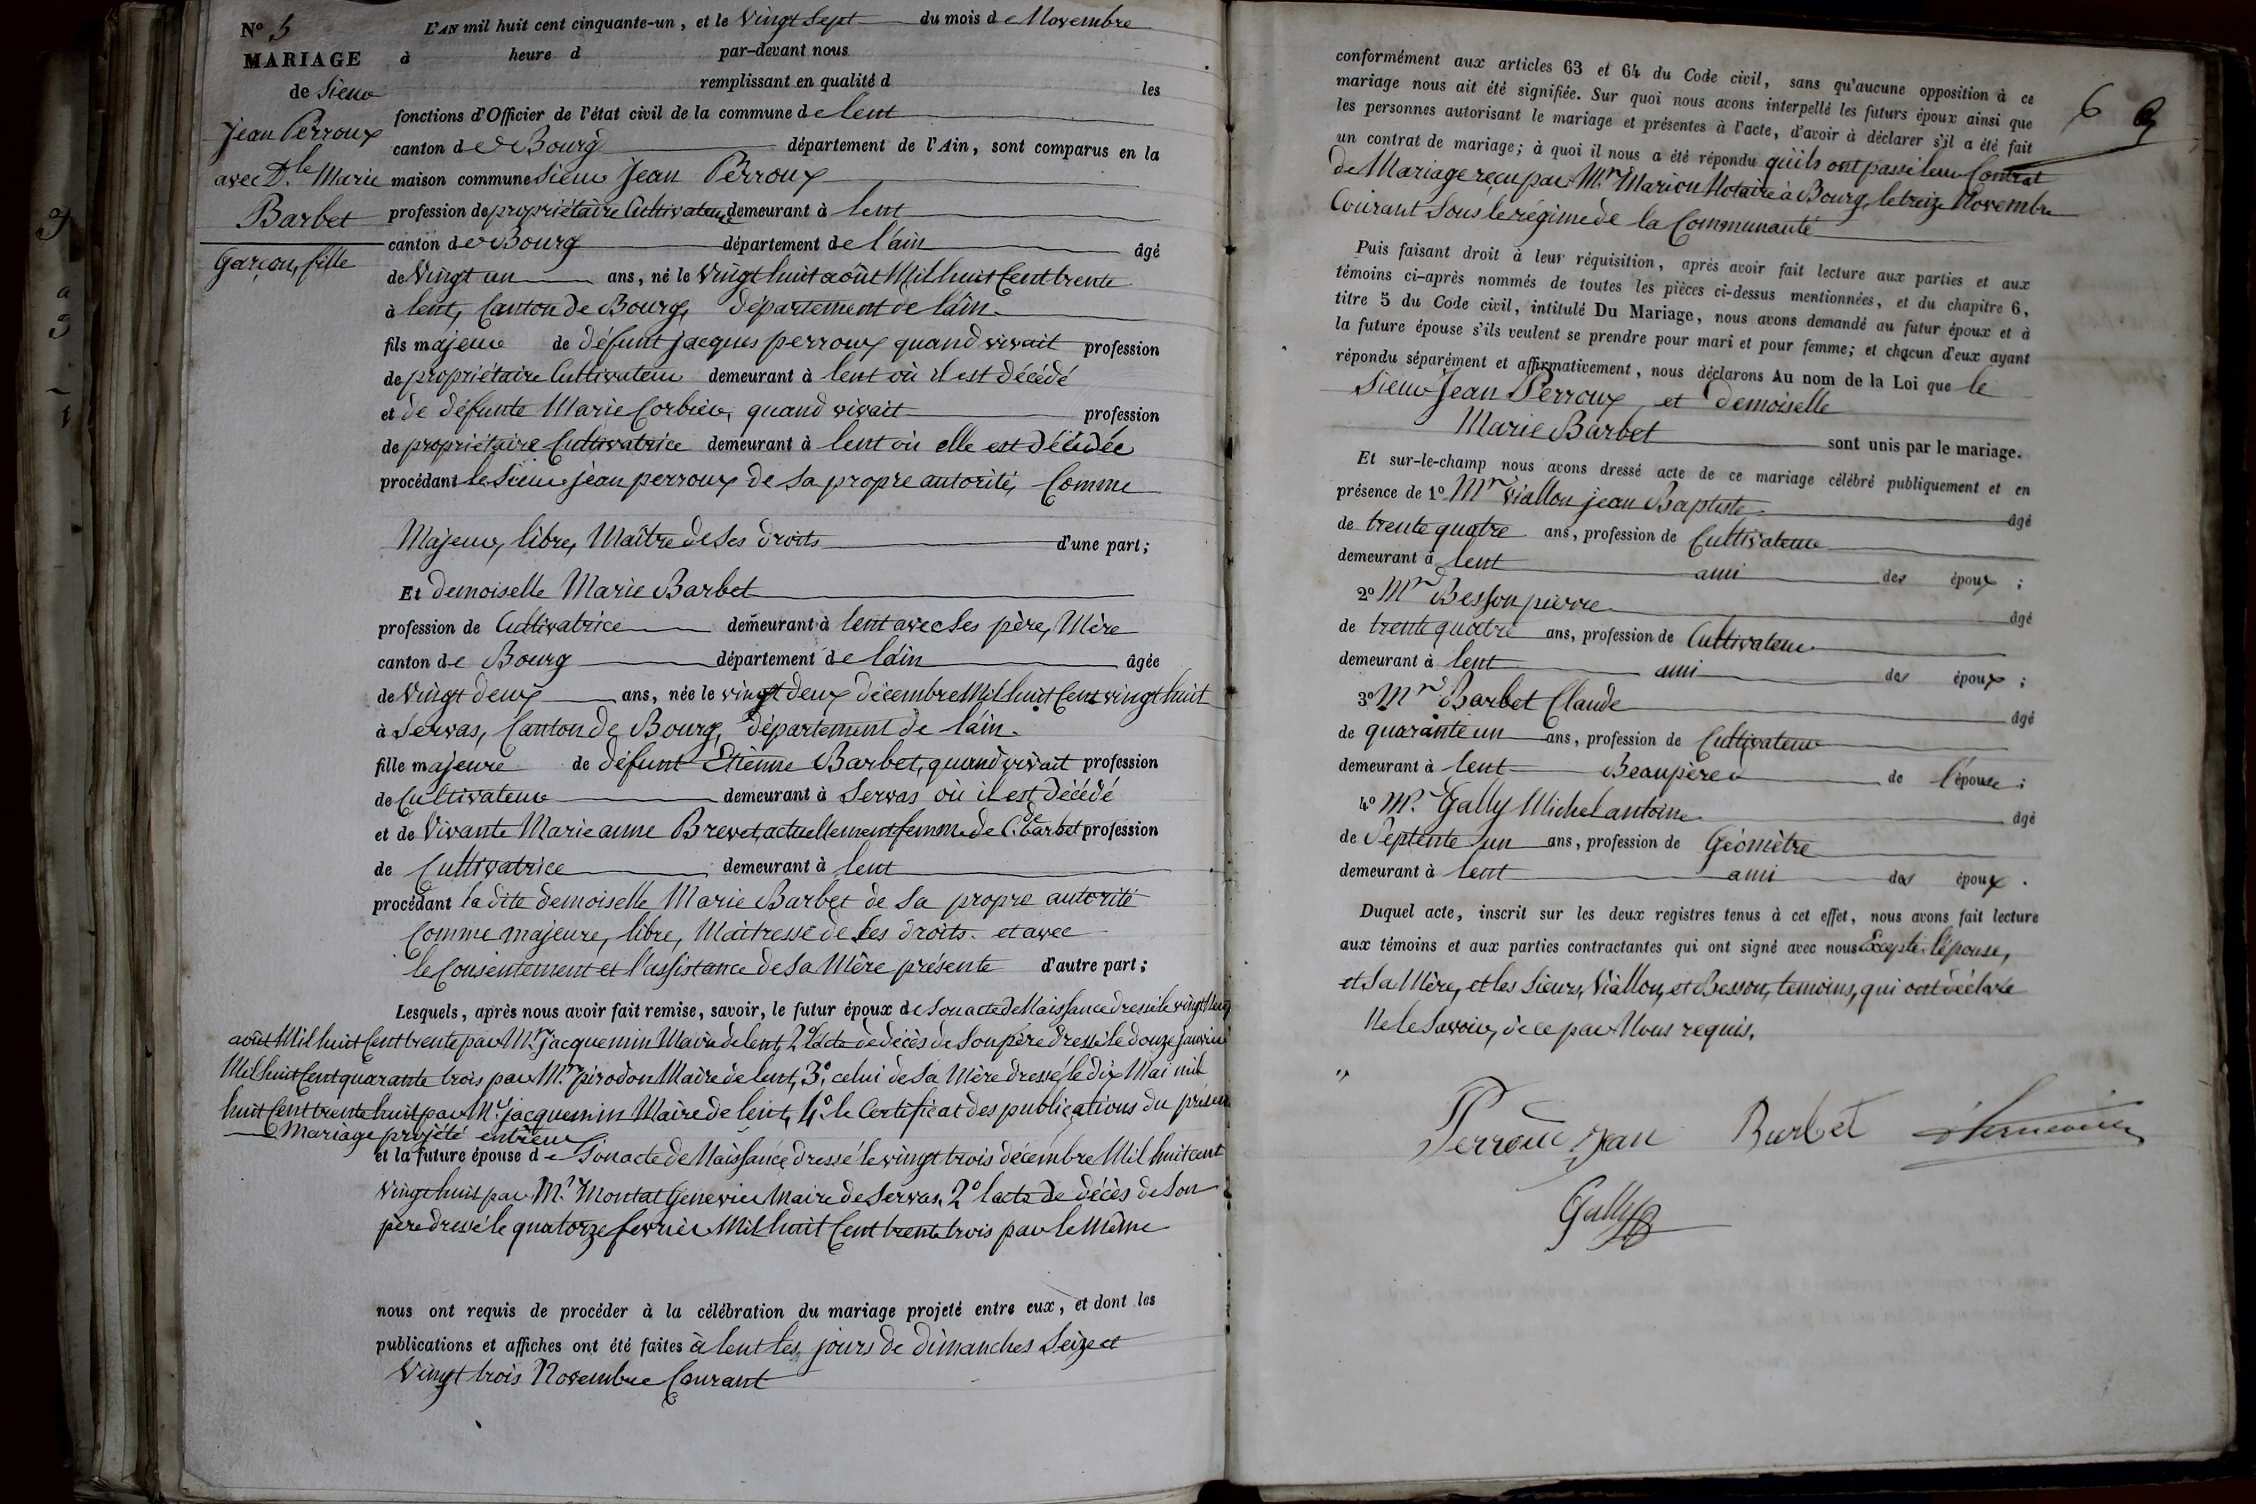 N° 5
MARIAGE
de Sieur
Jean Perroux
avec D.lle Marie
Barbet
Garçon, fille
L'AN mil huit cent cinquante-un, et le Vingt Sept du mois de Novembre
à heure d par-devant nous
remplissant en qualité d les
fonctions d'Officier de l'état civil de la commune de lent
canton de Bourg département de l'Ain, sont comparus en la
maison commune Sieur Jean Perroux
profession de propriétaire Cultivateur demeurant à lent
canton de Bourg département de l'ain âgé
de Vingt un ans, né le Vingt huit août Mil huit Cent trente
à lent, Canton de Bourg, département de l'ain.
fils majeur de défunt jacques perroux quand vivait profession
de propriétaire Cultivateur demeurant à lent où il est décédé
et de défunte Marie Corbier, quand vivait profession
de propriétaire Cultivatrice demeurant à lent où elle est décédée
procédant le Sieur jean perroux de sa propre autorité, Comme
Majeur, libre, Maître de Ses droits d'une part;
Et demoiselle Marie Barbet
profession de Cultivatrice demeurant à lent avec Ses père, Mère
canton de Bourg département de l'ain âgée
de Vingt deux ans, née le vingt deux décembre Mil huit Cent vingt huit
à Servas, Canton de Bourg, département de l'ain.
fille majeure de défunt Etienne Barbet, quand vivait profession
de Cultivateur demeurant à Servas où il est décédé
et de Vivante Marie anne Brevet, actuellement femme de C.de barbet profession
de Cultivatrice demeurant à lent
procédant la dite demoiselle Marie Barbet de sa propre autorité
Comme majeure, libre, Maitresse de Ses droits. et avec
le Consentement et l'assistance de Sa Mère présente d'autre part;
Lesquels, après nous avoir fait remise, savoir, le futur époux de Son acte de Naissance dressé le vingt neuf
août Mil huit Cent trente par Mr jacquemin Maire de lent, 2° l'acte de décès de Son père dressé le douze janvier
Mil huit Cent quarante trois par Mr pirodon Maire de lent, 3°. celui de Sa Mère dressé le dix Mai mil
huit Cent trente huit par Mr jacquemin Maire de lent, 4° le Certificat des publications du présent
Mariage projeté entreux
et la future épouse de Son acte de Naissance dressé le vingt trois décembre Mil huit cent
vingt huit par Mr Montat Genevier Maire de Servas, 2° l'acte de décès de Son
père dressé le quatorze fevrier Mil huit Cent trente trois par le Même
nous ont requis de procéder à la célébration du mariage projeté entre eux, et dont les
publications et affiches ont été faites à lent les jours de dimanches Seize et
Vingt trois Novembre Courant
6
conformément aux articles 63 et 64 du Code civil, sans qu'aucune opposition à ce
mariage nous ait été signifiée. Sur quoi nous avons interpellé les futurs époux ainsi que
les personnes autorisant le mariage et présentes à l'acte, d'avoir à déclarer s'il a été fait
un contrat de mariage; à quoi il nous a été répondu qu'ils ont passé leur Contrat
de Mariage reçu par Mr Marion Notaire à Bourg, le treize Novembre
Courant Sous le régime de la Communauté
Puis faisant droit à leur réquisition, après avoir fait lecture aux parties et aux
témoins ci-après nommés de toutes les pièces ci-dessus mentionnées, et du chapitre 6,
titre 5 du Code civil, intitulé Du Mariage, nous avons demandé au futur époux et à
la future épouse s'ils veulent se prendre pour mari et pour femme; et chacun d'eux ayant
répondu séparément et affirmativement, nous déclarons Au nom de la Loi que le
Sieur Jean Perroux et demoiselle
Marie Barbet sont unis par le mariage.
Et sur-le-champ nous avons dressé acte de ce mariage célébré publiquement et en
présence de 1° Mr Viallon jean Baptiste âgé
de trente quatre ans, profession de Cultivateur
demeurant à lent ami des époux ;
2° Mr Besson pierre âgé
de trente quatre ans, profession de Cultivateur
demeurant à lent ami des époux ;
3° Mr Barbet Claude âgé
de quarante un ans, profession de Cultivateur
demeurant à lent Beaupère de l'épouse ;
4° Mr Gally Michel antoine âgé
de Septente un ans, profession de Géomètre
demeurant à lent ami des époux .
Duquel acte, inscrit sur les deux registres tenus à cet effet, nous avons fait lecture
aux témoins et aux parties contractantes qui ont signé avec nous Excepté l'épouse,
et Sa Mère, et les Sieurs Viallon, et Besson, temoins, qui ont déclaré
Ne le Savoir, de ce par Nous requis.
Perroux Jan Barbet
Gally